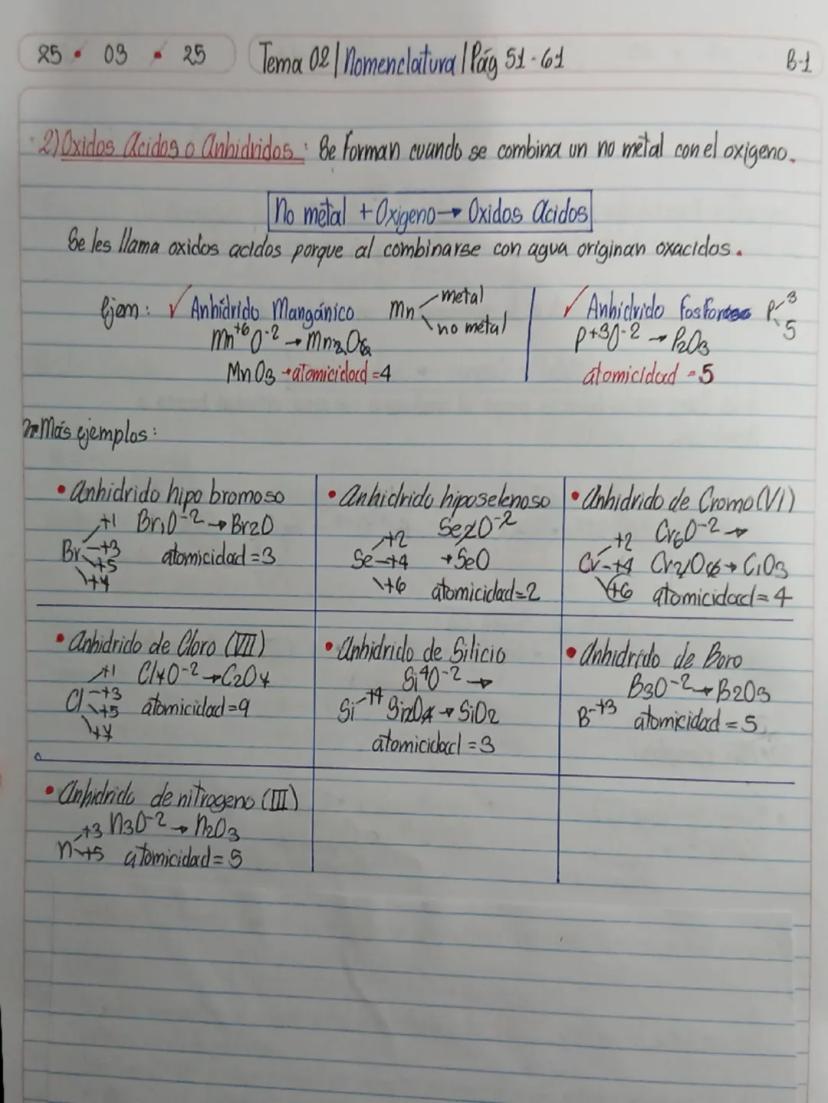 25 • 03 • 25 Tema 02 | Nomenclatura | Pág 51-61 B-1
2) Oxidos Acidos o Anhidridos: Se forman cuando se combina un no metal con el oxigeno.
No metal + Oxigeno → Oxidos Acidos
Se les llama oxidos acidos porque al combinarse con agua originan oxacidos.
Ejem: ✓ Anhidrido Mangánico Mn metal no metal
Mn+6 O-2 → Mn2O6
MnO3 → atomicidad = 4
✓ Anhidrido fosforoso P 3 5
P+3O-2 → P2O3
atomicidad = 5
Más ejemplos:
• Anhidrido hipo bromoso
+1 Br1O-2 → Br2O
Br +3 atomicidad = 3
+5
+7
• Anhidrido hiposelenoso
Se2O-2
+2
Se +4 → SeO
+6 atomicidad = 2
• Anhidrido de Cromo (VI)
+2 Cr6O-2 →
Cr +4 Cr2O6 → CrO3
+6 atomicidad = 4
• Anhidrido de Cloro (VII)
+1 Cl7O-2 → C2O7
Cl +3
+5 atomicidad = 9
+7
• Anhidrido de Silicio
Si4O-2 →
Si +4 Si2O4 → SiO2
atomicidad = 3
• Anhidrido de Boro
B3O-2 → B2O3
B +3 atomicidad = 5
• Anhidrido de nitrogeno (III)
+3 N3O-2 → N2O3
N +5 atomicidad = 5